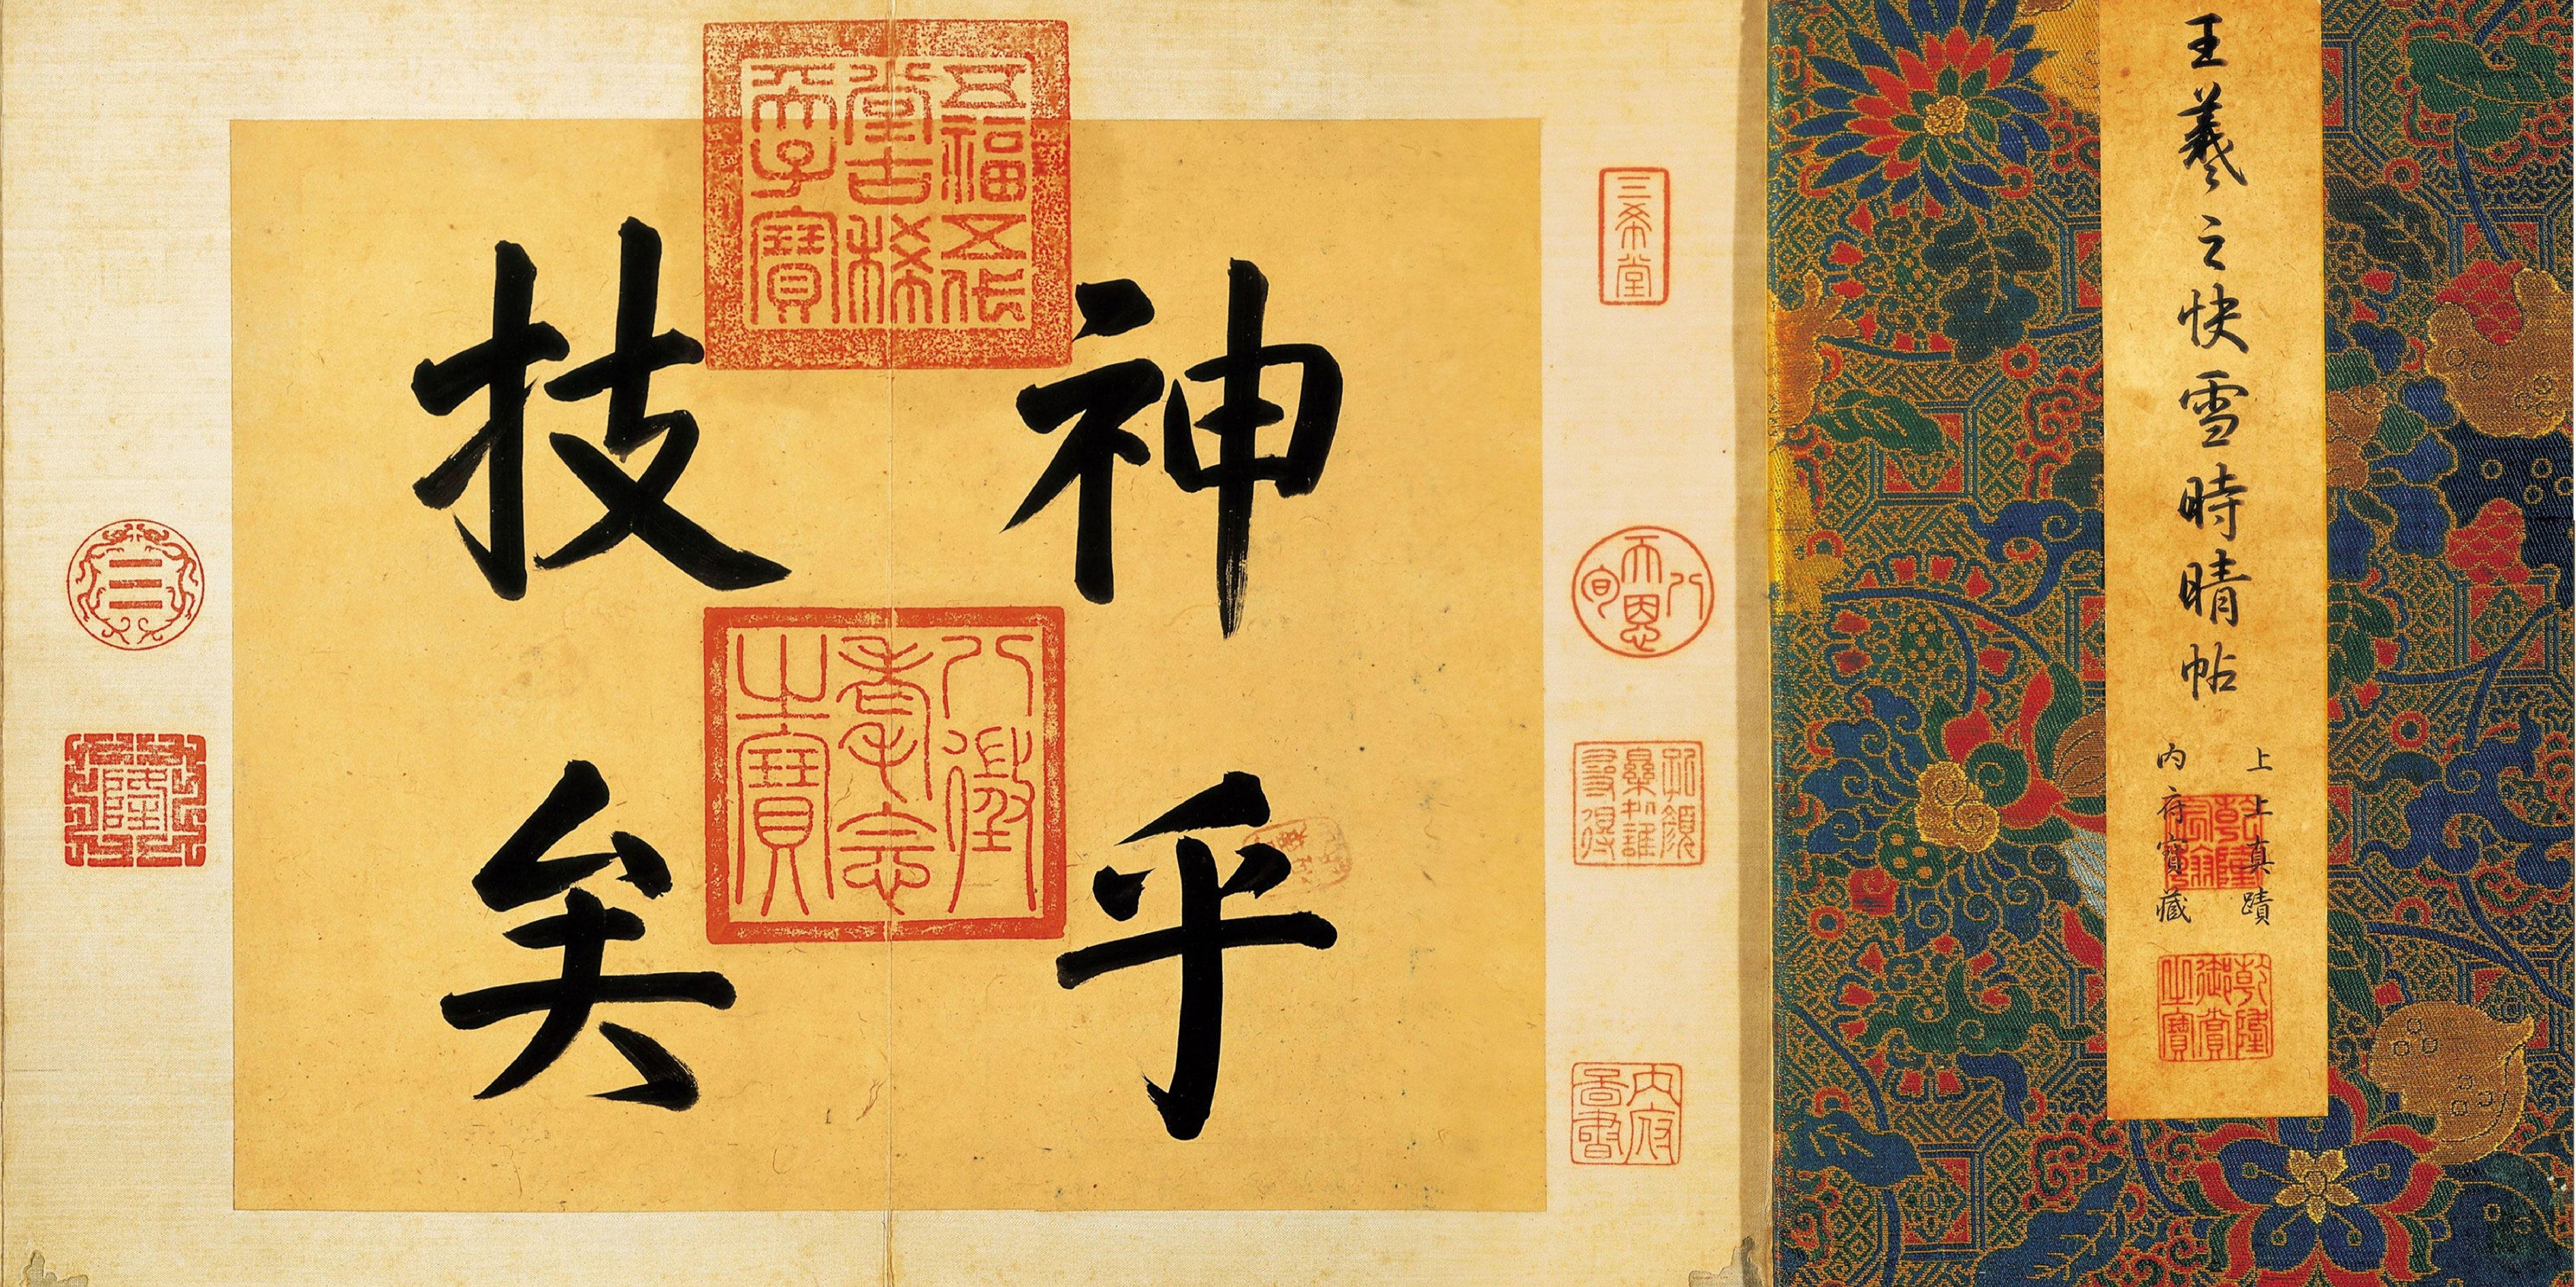 王羲之快雪時晴帖
上上真蹟
內府寶藏
乾隆宸翰
乾隆御賞之寶
三希堂
天恩八旬
神乎
技矣
五福五代
堂古稀
天子寶
八徵
耄念
之寶
隆